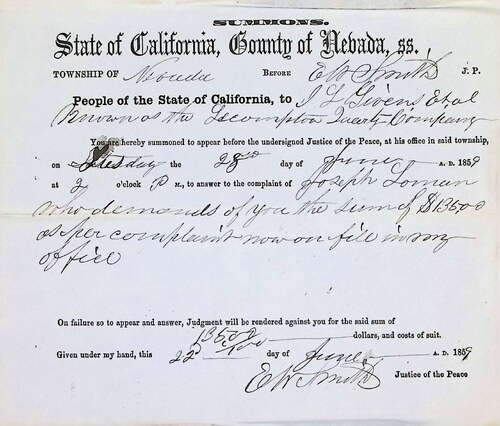 SUMMONS.
State of California, County of Nevada, ss.
TOWNSHIP OF Nevada BEFORE E W Smith J. P.
People of the State of California, to J L Givens Et al
Known as the Lecompton Quartz Company
You are hereby summoned to appear before the undersigned Justice of the Peace, at his office in said township,
on Tuesday the 28th day of June A. D. 1859
at 2 o'clock P M., to answer to the complaint of Joseph Loman
who demands of you the sum of $135.00
as per complaint now on file in my
office
On failure so to appear and answer, Judgment will be rendered against you for the said sum of
135.00/100 dollars, and costs of suit.
Given under my hand, this 22d day of June A. D. 1859
E W Smith Justice of the Peace